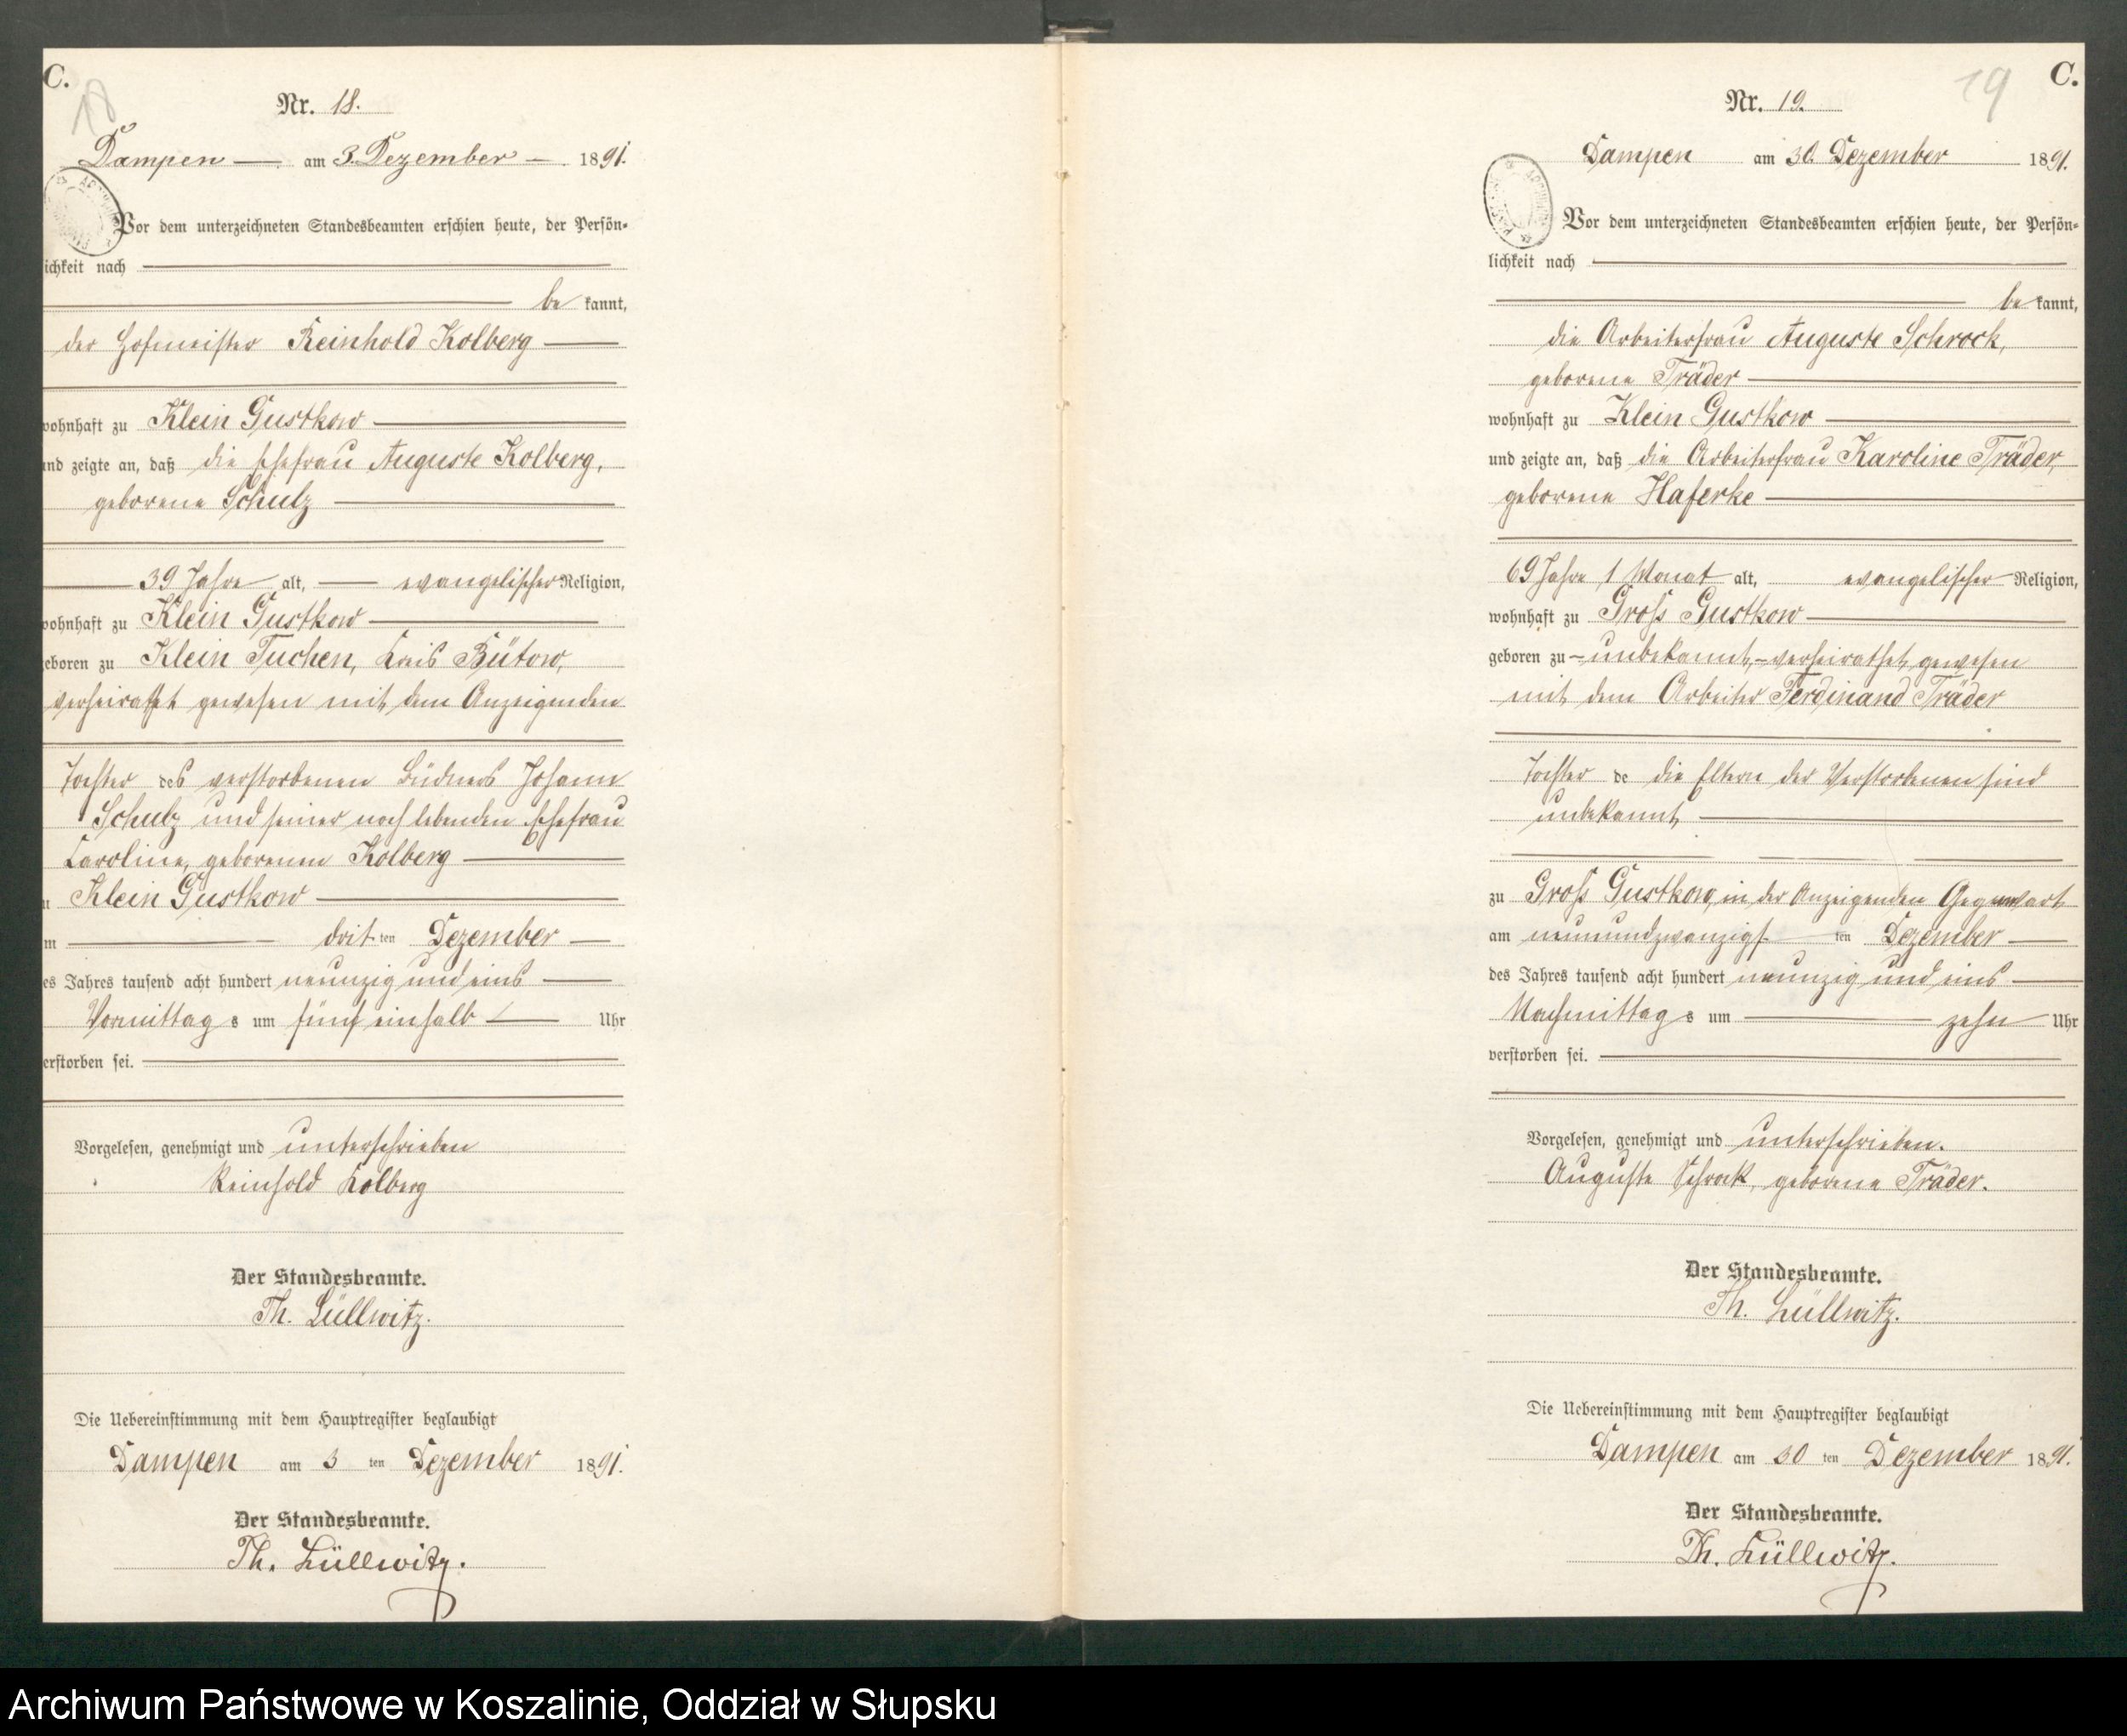 C.
18
Nr. 18.
Dampen am 3. Dezember 1891.
Vor dem unterzeichneten Standesbeamten erschien heute, der Persön-
ichkeit nach
be kannt,
der Hofmeister Reinhold Kolberg
wohnhaft zu Klein Gustkow
und zeigte an, daß die Ehefrau Auguste Kolberg,
geborene Schulz
39 Jahre alt, evangelischer Religion,
wohnhaft zu Klein Gustkow
geboren zu Klein Tuchen, Kreis Bütow,
verheirathet gewesen mit dem Anzeigenden
Tochter des verstorbenen Büdners Johann
Schulz und seiner noch lebenden Ehefrau
Caroline, geborenen Kolberg
zu Klein Gustkow
am dritten Dezember
des Jahres tausend acht hundert neunzig und eins
Vormittags um fünf einhalb Uhr
verstorben sei.
Vorgelesen, genehmigt und unterschrieben
Reinhold Kolberg
Der Standesbeamte.
Th. Lüllwitz.
Die Uebereinstimmung mit dem Hauptregister beglaubigt
Dampen am 3 ten Dezember 1891.
Der Standesbeamte.
Th. Lüllwitz.
19
C.
Nr. 19.
Dampen am 30. Dezember 1891.
Vor dem unterzeichneten Standesbeamten erschien heute, der Persön-
lichkeit nach
be kannt,
die Arbeiterfrau Auguste Schrock,
geborene Träder
wohnhaft zu Klein Gustkow
und zeigte an, daß die Arbeiterfrau Karoline Träder,
geborene Haferke
69 Jahre 1 Monat alt, evangelischer Religion,
wohnhaft zu Groß Gustkow
geboren zu - unbekannt, - verheirathet gewesen
mit dem Arbeiter Ferdinand Träder
Tochter de die Eltern der Verstorbenen sind
unbekannt,
zu Groß Gustkow, in der Anzeigenden Gegenwart
am neunundzwanzigsten Dezember
des Jahres tausend acht hundert neunzig und eins
Nachmittags um zehn Uhr
verstorben sei.
Vorgelesen, genehmigt und unterschrieben.
Auguste Schrock, geborene Träder.
Der Standesbeamte.
Th. Lüllwitz.
Die Uebereinstimmung mit dem Hauptregister beglaubigt
Dampen am 30 ten Dezember 1891.
Der Standesbeamte.
Th. Lüllwitz.
Archiwum Państwowe w Koszalinie, Oddział w Słupsku